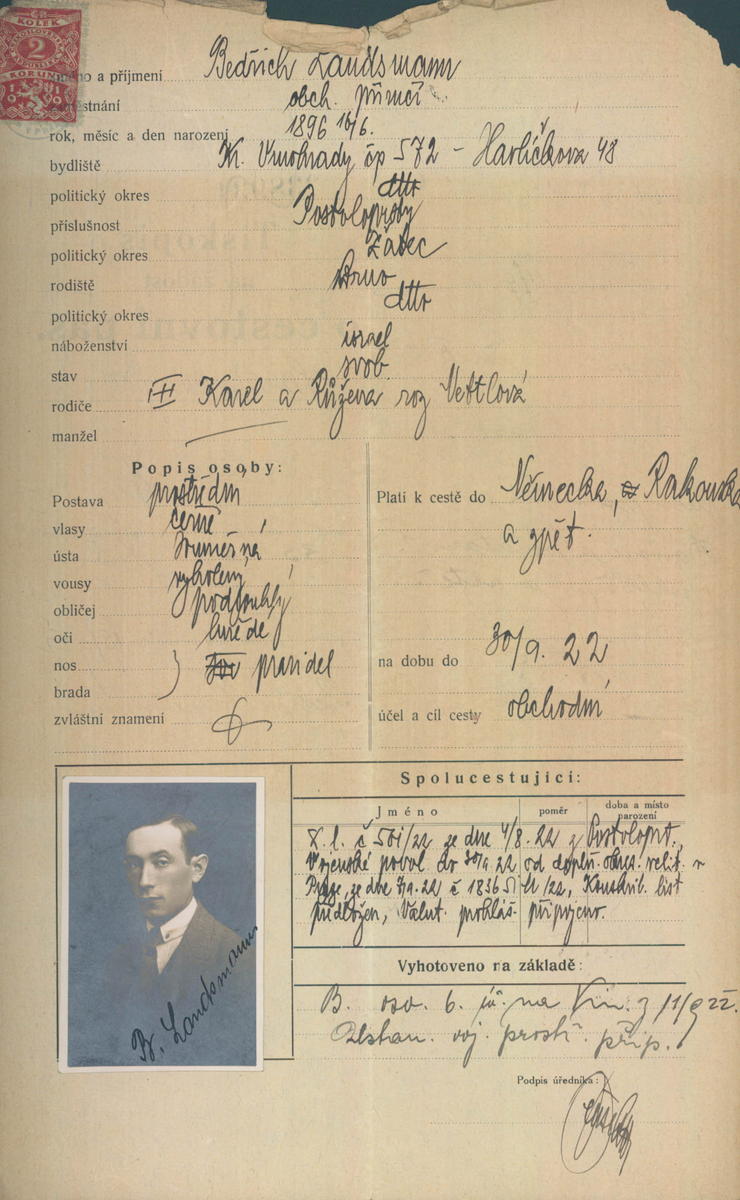 KOLEK
2
KORUNY
1919
jméno a příjmení Bedřich Landsmann
zaměstnání obch. příručí
rok, měsíc a den narození 1896 16/6.
bydliště Kr. Vinohrady čp 572 - Havlíčkova 48
politický okres dtto
příslušnost Postoloprty
politický okres Žatec
rodiště
politický okres dtto
náboženství israel
stav svob.
rodiče Karel a Růžena roz Vettlová
manžel
Popis osoby:
Postava prostřední
vlasy černé
ústa souměrná
vousy vyholený
obličej podlouhlý
oči hnědé
nos pravidel
brada
zvláštní znamení
Platí k cestě do Německa, Rakouska
a zpět.
na dobu do 30/9. 22
účel a cíl cesty obchodní
B. Landsmann
Spolucestující:
Jméno poměr doba a místo
narození
D. l. č 501/22 ze dne 4/8. 22 z Postoloprt.,
Vojenské povol. do 30/9 22 od doplň. okres. velit. v
Praze, ze dne 7/9. 22 č 18365 /22, list
předložen, Valut. prohláš. připojeno.
Vyhotoveno na základě:
B. oso. 6. na Vin. z 11/9 22.
voj. prostř. přip.
Podpis úředníka: